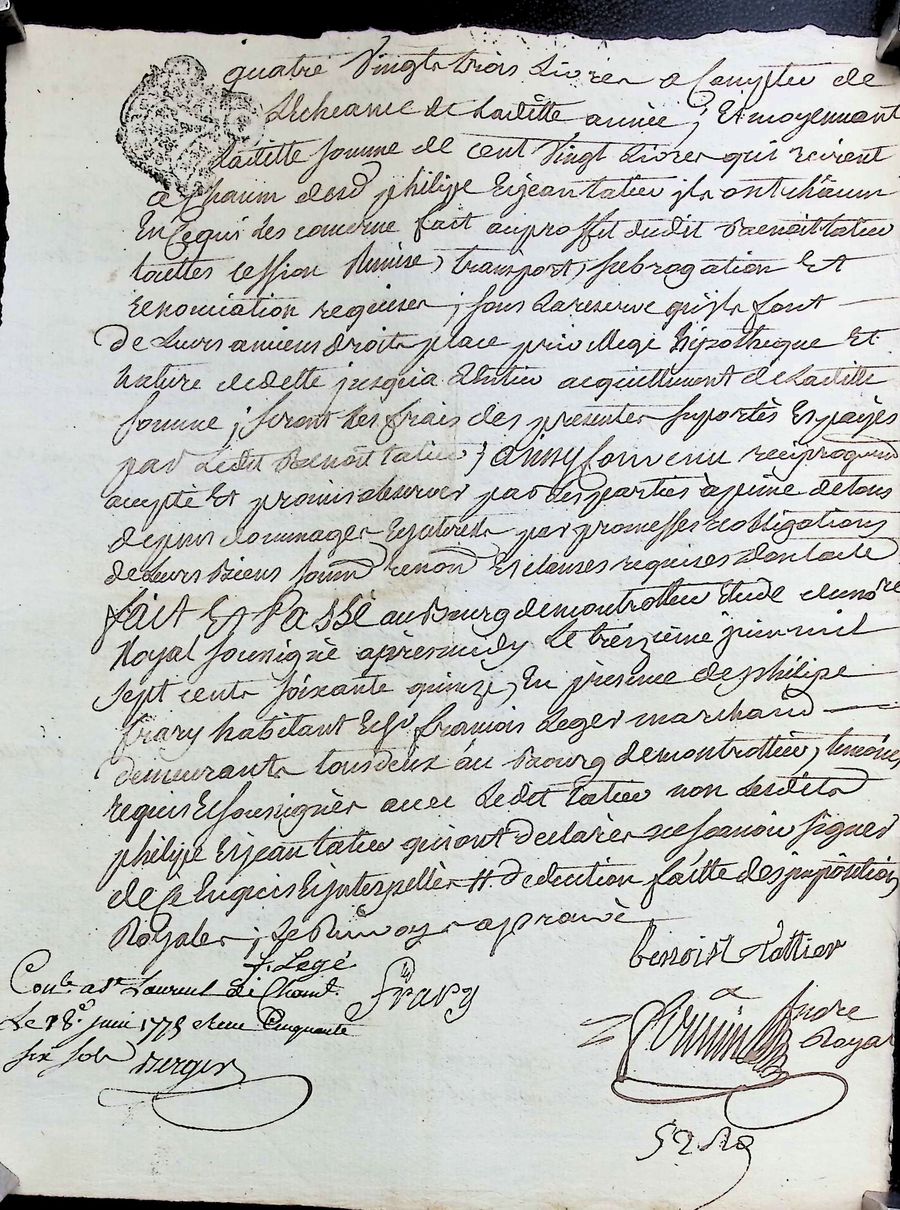 quatre Vingts trois Livres a Compter de
Lecheance de Laditte année ; Et moyennant
Laditte somme de cent Vingt Livres qui revient
a Chacun desd philippe Et jean tatieu ils ont châcun
En Ce qui les concerne fait au proffit dudit Benoit tatieu
touttes cession Remise, transport, subrogation Et
Renonciation requises ; sous La reserve qu'ils font
De Leurs anciens droits place privillege hipotheque Et
nature de dette jusqua Lentier acquittement de Laditte
somme ; seront Les frais des presentes suportés Et payés
par Ledit Benoit tatieu ; ainsy Convenu reciproquem
accepté Et promis observer par Les parties a peine de tous
depens dommages Et interests par promesses obligations
de Leurs Biens soumd renond Et clauses requises dont acte
fait Et Passé au Bourg de montrottier Etude du no.re
Royal soussigné apres midy Le treizieme juin mil
sept cents soixante quinze, En presence de philipe
frary habitant Et sr francois Leger marchand
demeurants tous deux au Bourg de montrottier, temoins
requis Et soussignés avec Ledit tatieu non Lesdits
philipe Et jean tatieu qui ont declarés ne scavoir signer
de ce Enquis Et interpellés # deduction faitte des impositions
Royales ; Le Renvoy aprouvé
benoist tattier
f. Legé
Frary
Conlé a St Laurent de Chamt.
Le 18e. juin 1775 Receu Cinquante
six sols
Berger
Nore
Royal